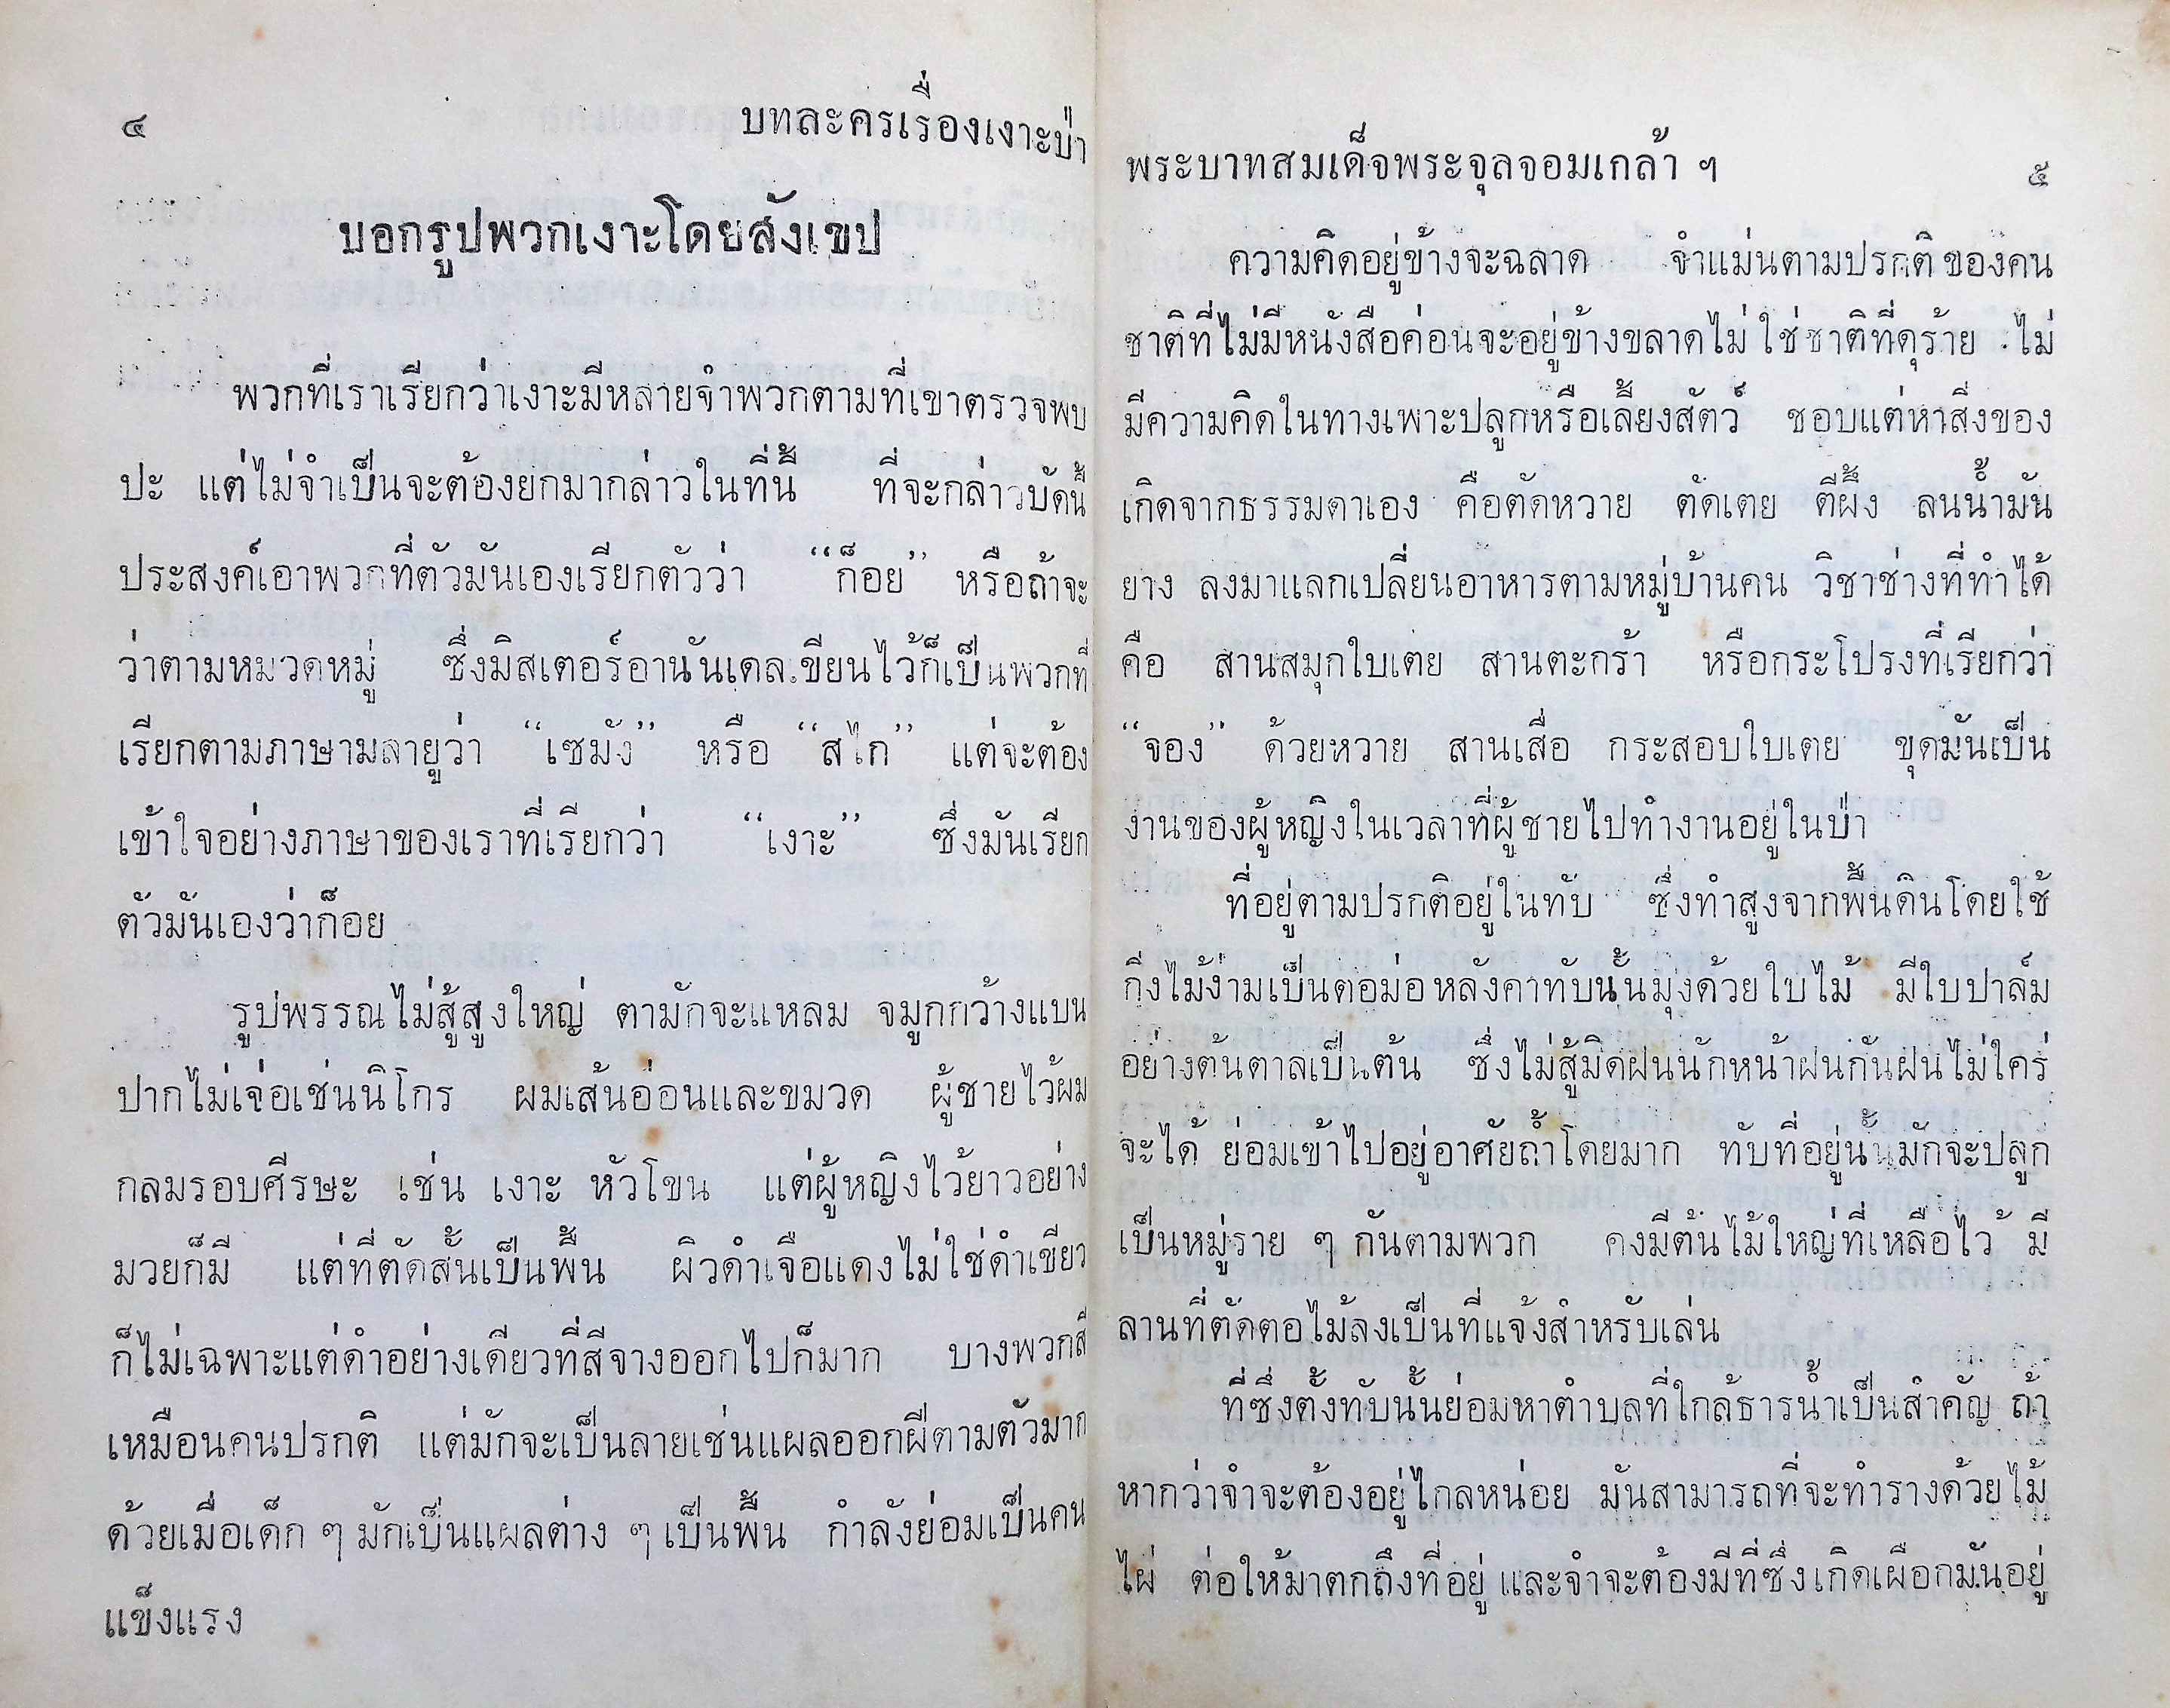 ๔ บทละครเรื่องเงาะป่า
บอกรูปพวกเงาะโดยสังเขป
พวกที่เราเรียกว่าเงาะมีหลายจำพวกตามที่เขาตรวจพบ
ปะ แต่ไม่จำเป็นจะต้องยกมากล่าวในที่นี้ ที่จะกล่าวบัดนี้
ประสงค์เอาพวกที่ตัวมันเองเรียกตัวว่า “ก็อย” หรือถ้าจะ
ว่าตามหมวดหมู่ ซึ่งมิสเตอร์อานันเดลเขียนไว้ก็เป็นพวกที่
เรียกตามภาษามลายูว่า “เซมัง” หรือ “สไก” แต่จะต้อง
เข้าใจอย่างภาษาของเราที่เรียกว่า “เงาะ” ซึ่งมันเรียก
ตัวมันเองว่าก็อย
รูปพรรณไม่สู้สูงใหญ่ ตามักจะแหลม จมูกกว้างแบน
ปากไม่เจ่อเช่นนิโกร ผมเส้นอ่อนและขมวด ผู้ชายไว้ผม
กลมรอบศีรษะ เช่น เงาะ หัวโขน แต่ผู้หญิงไว้ยาวอย่าง
มวยก็มี แต่ที่ตัดสั้นเป็นพื้น ผิวดำเจือแดงไม่ใช่ดำเขียว
ก็ไม่เฉพาะแต่ดำอย่างเดียวที่สีจางออกไปก็มาก บางพวกสี
เหมือนคนปรกติ แต่มักจะเป็นลายเช่นแผลออกฝีตามตัวมาก
ด้วยเมื่อเด็ก ๆ มักเป็นแผลต่าง ๆ เป็นพื้น กำลังย่อมเป็นคน
แข็งแรง
พระบาทสมเด็จพระจุลจอมเกล้า ฯ ๕
ความคิดอยู่ข้างจะฉลาด จำแม่นตามปรกติของคน
ชาติที่ไม่มีหนังสือค่อนจะอยู่ข้างขลาดไม่ใช่ชาติที่ดุร้าย ไม่
มีความคิดในทางเพาะปลูกหรือเลี้ยงสัตว์ ชอบแต่หาสิ่งของ
เกิดจากธรรมดาเอง คือตัดหวาย ตัดเตย ตีผึ้ง ลนน้ำมัน
ยาง ลงมาแลกเปลี่ยนอาหารตามหมู่บ้านคน วิชาช่างที่ทำได้
คือ สานสมุกใบเตย สานตะกร้า หรือกระโปรงที่เรียกว่า
“จอง” ด้วยหวาย สานเสื่อ กระสอบใบเตย ขุดมันเป็น
งานของผู้หญิงในเวลาที่ผู้ชายไปทำงานอยู่ในป่า
ที่อยู่ตามปรกติอยู่ในทับ ซึ่งทำสูงจากพื้นดินโดยใช้
กิ่งไม้ง่ามเป็นตอม่อ หลังคาทับนั้นมุงด้วยใบไม้ มีใบปาล์ม
อย่างต้นตาลเป็นต้น ซึ่งไม่สู้มิดฝนนักหน้าฝนกันฝนไม่ใคร่
จะได้ ย่อมเข้าไปอยู่อาศัยถ้ำโดยมาก ทับที่อยู่นั้นมักจะปลูก
เป็นหมู่ราย ๆ กันตามพวก คงมีต้นไม้ใหญ่ที่เหลือไว้ มี
ลานที่ตัดตอไม้ลงเป็นที่แจ้งสำหรับเล่น
ที่ซึ่งตั้งทับนั้นย่อมหาตำบลที่ใกล้ธารน้ำเป็นสำคัญ ถ้า
หากว่าจำจะต้องอยู่ไกลหน่อย มันสามารถที่จะทำรางด้วยไม้
ไผ่ ต่อให้มาตกถึงที่อยู่ และจำจะต้องมีที่ซึ่งเกิดเผือกมันอยู่